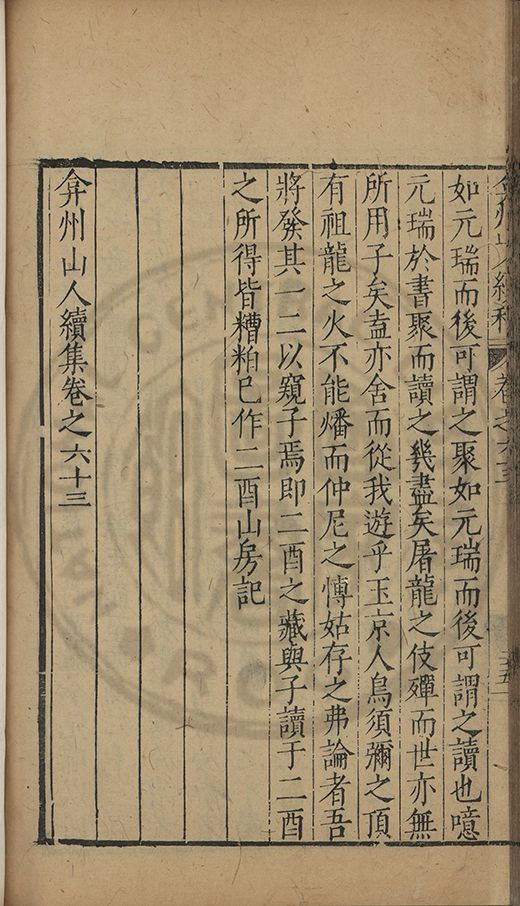 弇州山人續稿 卷之六十三
如元瑞而後可謂之聚如元瑞而後可謂之讀也噫
元瑞於書聚而讀之幾盡矣屠龍之伎殫而世亦無
所用子矣盍亦舍而從我遊乎玉京人鳥須彌之頂
有祖龍之火不能燔而仲尼之慱姑存之弗論者吾
將發其一二以窺子焉即二酉之藏與子讀于二酉
之所得皆糟粕巳作二酉山房記
弇州山人續集卷之六十三